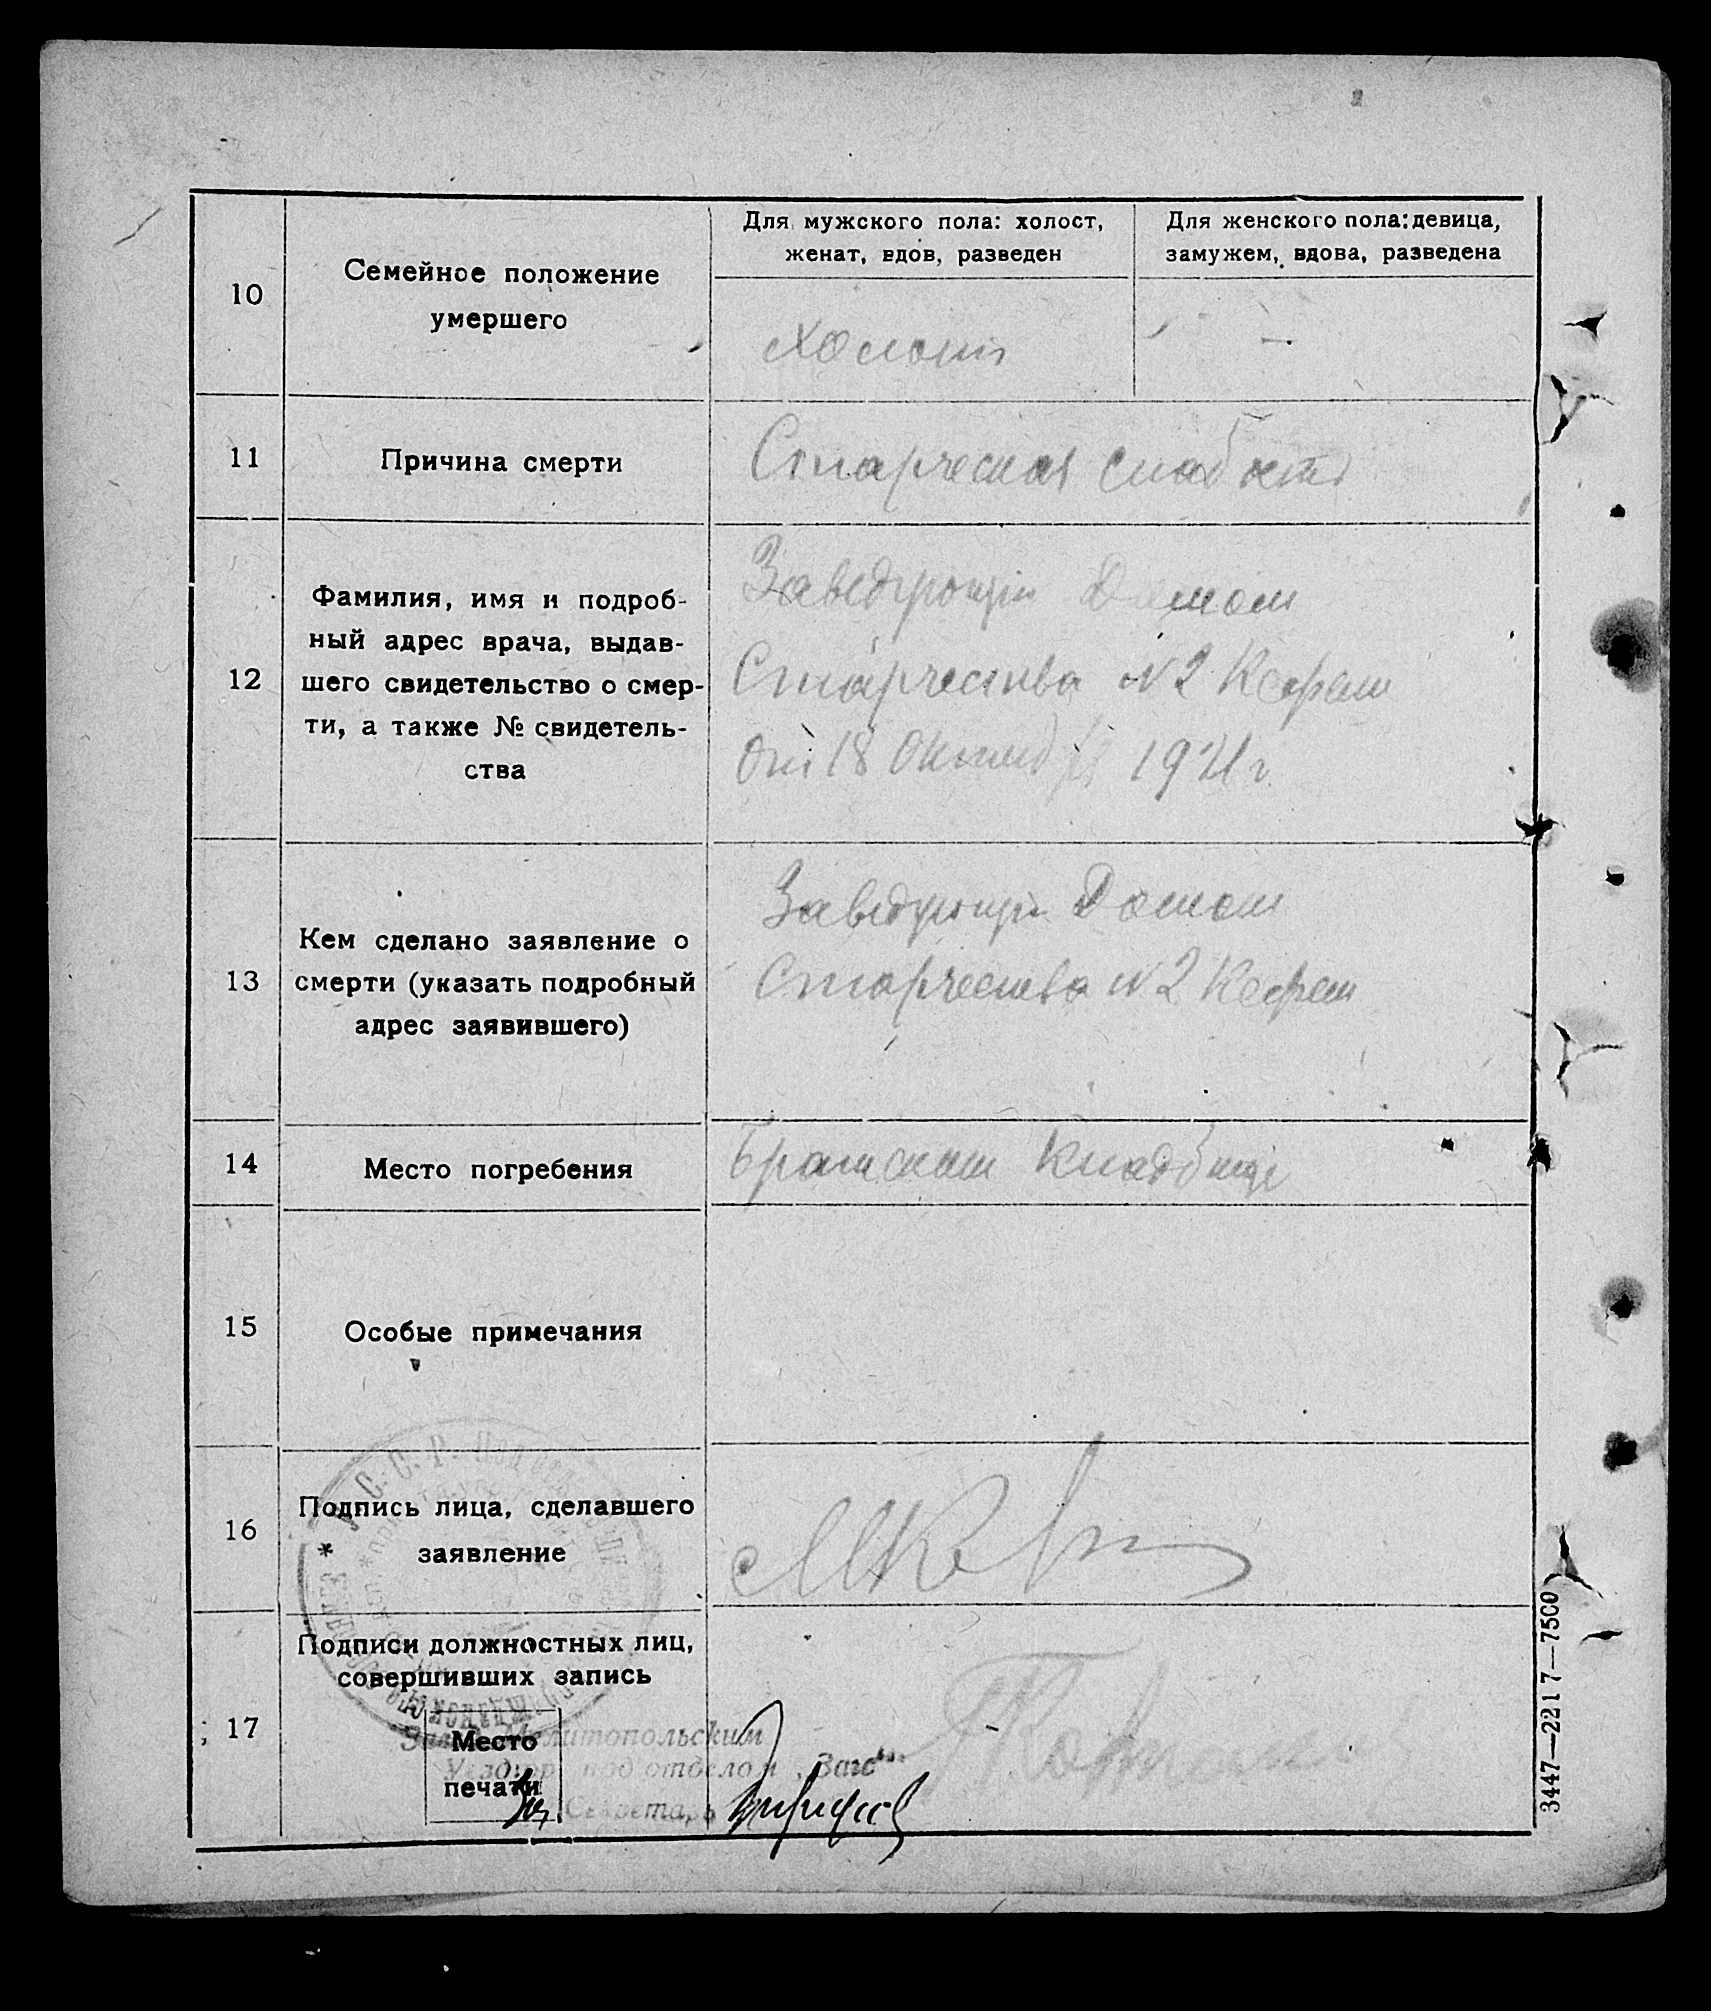 10
Семейное положение
умершего
Для мужского пола: холост,
женат, вдов, разведен
Для женского пола: девица,
замужем, вдова, разведена
Холост
-
11
Причина смерти
Старческая слабость
12
Фамилия, имя и подроб-
ный адрес врача, выдав-
шего свидетельство о смер-
ти, а также № свидетель-
ства
Заведующий Домом
Старчества №2
От 18 Октяб 1921 г.
13
Кем сделано заявление о
смерти (указать подробный
адрес заявившего)
Заведующий Домом
Старчества №2
14
Место погребения
Братском Кладбище
15
Особые примечания
16
Подпись лица, сделавшего
заявление
17
Подписи должностных лиц,
совершивших запись
Место
печати
Мелитопольским
под отделом „Загс"
Секретарь
3447—2217—7500